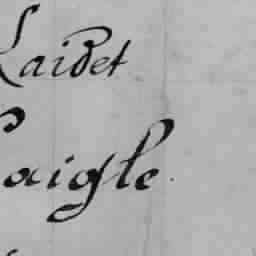 Laidet
Laigle.